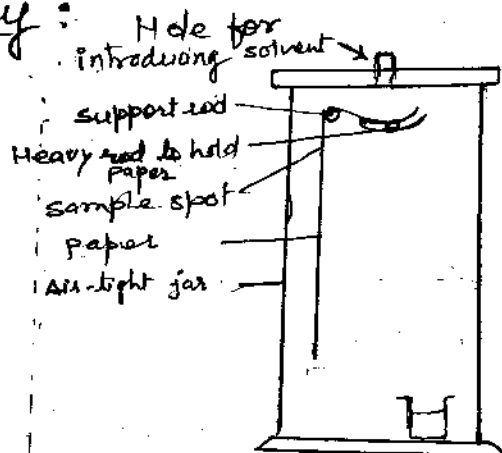 y :
Hole for
introducing solvent
support rod
Heavy rod to hold
paper
sample spot
paper
Air-tight jar